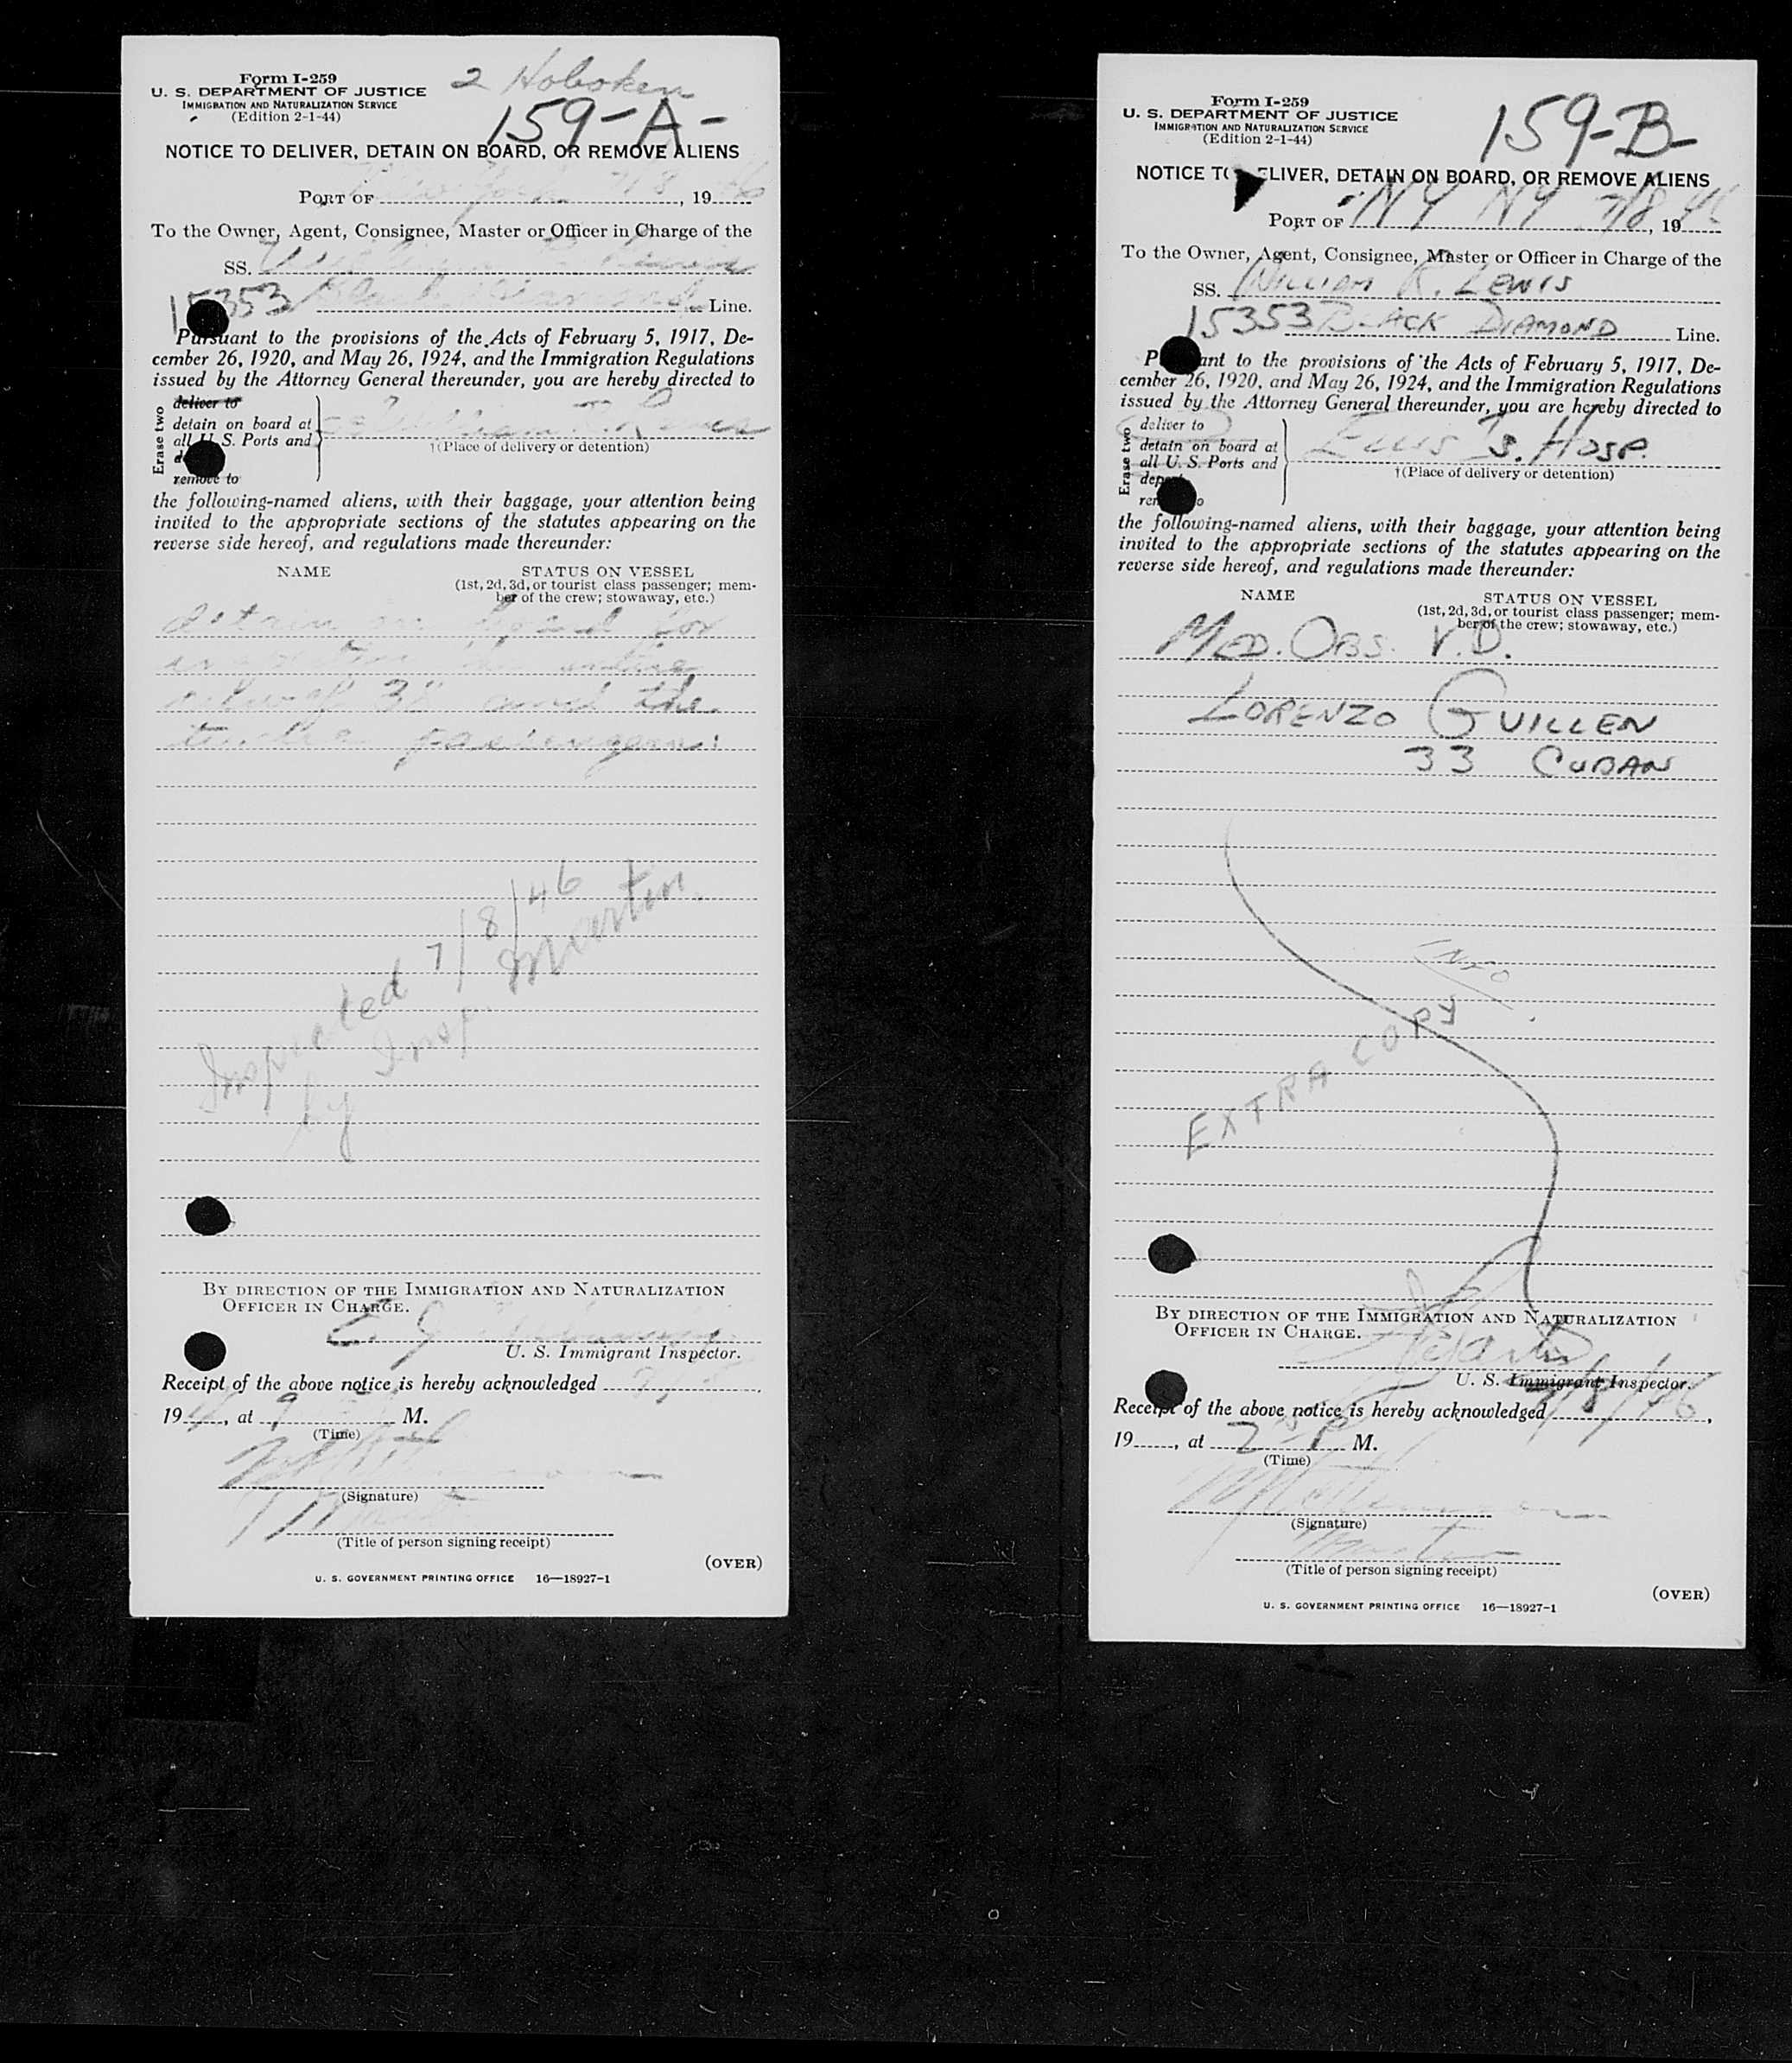 2 Hoboken
Form I-259
U. S. DEPARTMENT OF JUSTICE
IMMIGRATION AND NATURALIZATION SERVICE
(Edition 2-1-44)
159-A-
NOTICE TO DELIVER, DETAIN ON BOARD, OR REMOVE ALIENS
PORT OF New York 7/8, 1946
To the Owner, Agent, Consignee, Master or Officer in Charge of the
SS. William R. Lewis
15353 Black Diamond Line.
Pursuant to the provisions of the Acts of February 5, 1917, De-
cember 26, 1920, and May 26, 1924, and the Immigration Regulations
issued by the Attorney General thereunder, you are hereby directed to
Erase two
deliver to
detain on board at
all U. S. Ports and
remove to
SS William R. Lewis
†(Place of delivery or detention)
the following-named aliens, with their baggage, your attention being
invited to the appropriate sections of the statutes appearing on the
reverse side hereof, and regulations made thereunder:
NAME
STATUS ON VESSEL
(1st, 2d, 3d, or tourist class passenger; mem-
ber of the crew; stowaway, etc.)
detain on board for
inspection the entire
crew of 38 and the
passengers:
Inspected 7/8/46
by Insp. Martin.
BY DIRECTION OF THE IMMIGRATION AND NATURALIZATION
OFFICER IN CHARGE.
E. J.
U. S. Immigrant Inspector.
Receipt of the above notice is hereby acknowledged
19, at 9 M.
(Time)
(Signature)
(Title of person signing receipt)
(OVER)
U. S. GOVERNMENT PRINTING OFFICE 16—18927-1
Form I-259
U. S. DEPARTMENT OF JUSTICE
IMMIGRATION AND NATURALIZATION SERVICE
(Edition 2-1-44)
159-B-
NOTICE TO DELIVER, DETAIN ON BOARD, OR REMOVE ALIENS
PORT OF NY NY 7/8, 1946
To the Owner, Agent, Consignee, Master or Officer in Charge of the
SS. WILLIAM R. LEWIS
15353 BLACK DIAMOND Line.
Pursuant to the provisions of the Acts of February 5, 1917, De-
cember 26, 1920, and May 26, 1924, and the Immigration Regulations
issued by the Attorney General thereunder, you are hereby directed to
Erase two
deliver to
detain on board at
all U. S. Ports and
ELLIS IS. HOSP.
†(Place of delivery or detention)
the following-named aliens, with their baggage, your attention being
invited to the appropriate sections of the statutes appearing on the
reverse side hereof, and regulations made thereunder:
NAME
STATUS ON VESSEL
(1st, 2d, 3d, or tourist class passenger; mem-
ber of the crew; stowaway, etc.)
MED. OBS. V.D.
LORENZO GUILLEN
33 CUBAN
INFO
EXTRA COPY
BY DIRECTION OF THE IMMIGRATION AND NATURALIZATION
OFFICER IN CHARGE.
Martin
U. S. Immigrant Inspector.
Receipt of the above notice is hereby acknowledged 7/8/46,
19, at 2 P M.
(Time)
(Signature)
Master
(Title of person signing receipt)
(OVER)
U. S. GOVERNMENT PRINTING OFFICE 16—18927-1